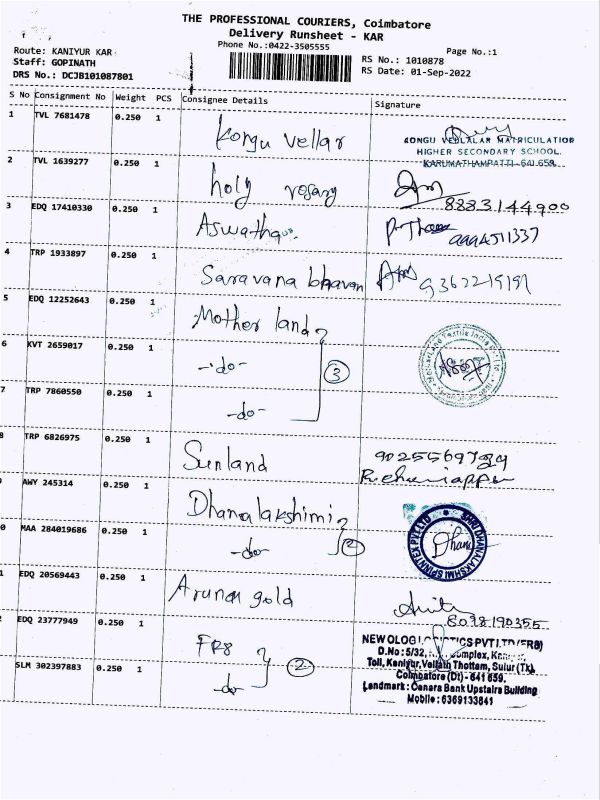 THE PROFESSIONAL COURIERS, Coimbatore
Delivery Runsheet - KAR
Phone No.:0422-3505555
Page No.:1
Route: KANIYUR KAR
Staff: GOPINATH
DRS No.: DCJB101087801
RS No.: 1010878
RS Date: 01-Sep-2022
S No Consignment No Weight PCS Consignee Details Signature
1 TVL 7681478 0.250 1 Kongu Vellar
KONGU VELLALAR MATRICULATION
HIGHER SECONDARY SCHOOL,
KARUMATHAMPATTI - 641 659.
2 TVL 1639277 0.250 1 holy rosary
8883144900
3 EDQ 17410330 0.250 1 Aswatha
4 TRP 1933897 0.250 1 Saravana bhavan
9362219191
5 EDQ 12252643 0.250 1 Mother land
6 KVT 2659017 0.250 1 -do- 3
7 TRP 7860550 0.250 1 -do-
8 TRP 6826975 0.250 1 Sunland
AWY 245314 0.250 1 Dhanalakshimi
0 MAA 284019686 0.250 1 -do- 2
SHRI DHANALAKSHMI SPINTEX PVT LTD
Dhanu
1 EDQ 20569443 0.250 1 Arunan gold
8098190355
2 EDQ 23777949 0.250 1 FR8
SLM 302397883 0.250 1 -do- 2
PVT LTD (FR8)
D.No: 5/32,
Toll, Kaniyur, Vellath Thottam, Sulur (Tk),
Coimbatore (Dt) - 641 659.
Landmark : Canara Bank Upstairs Building
Mobile : 6369133841